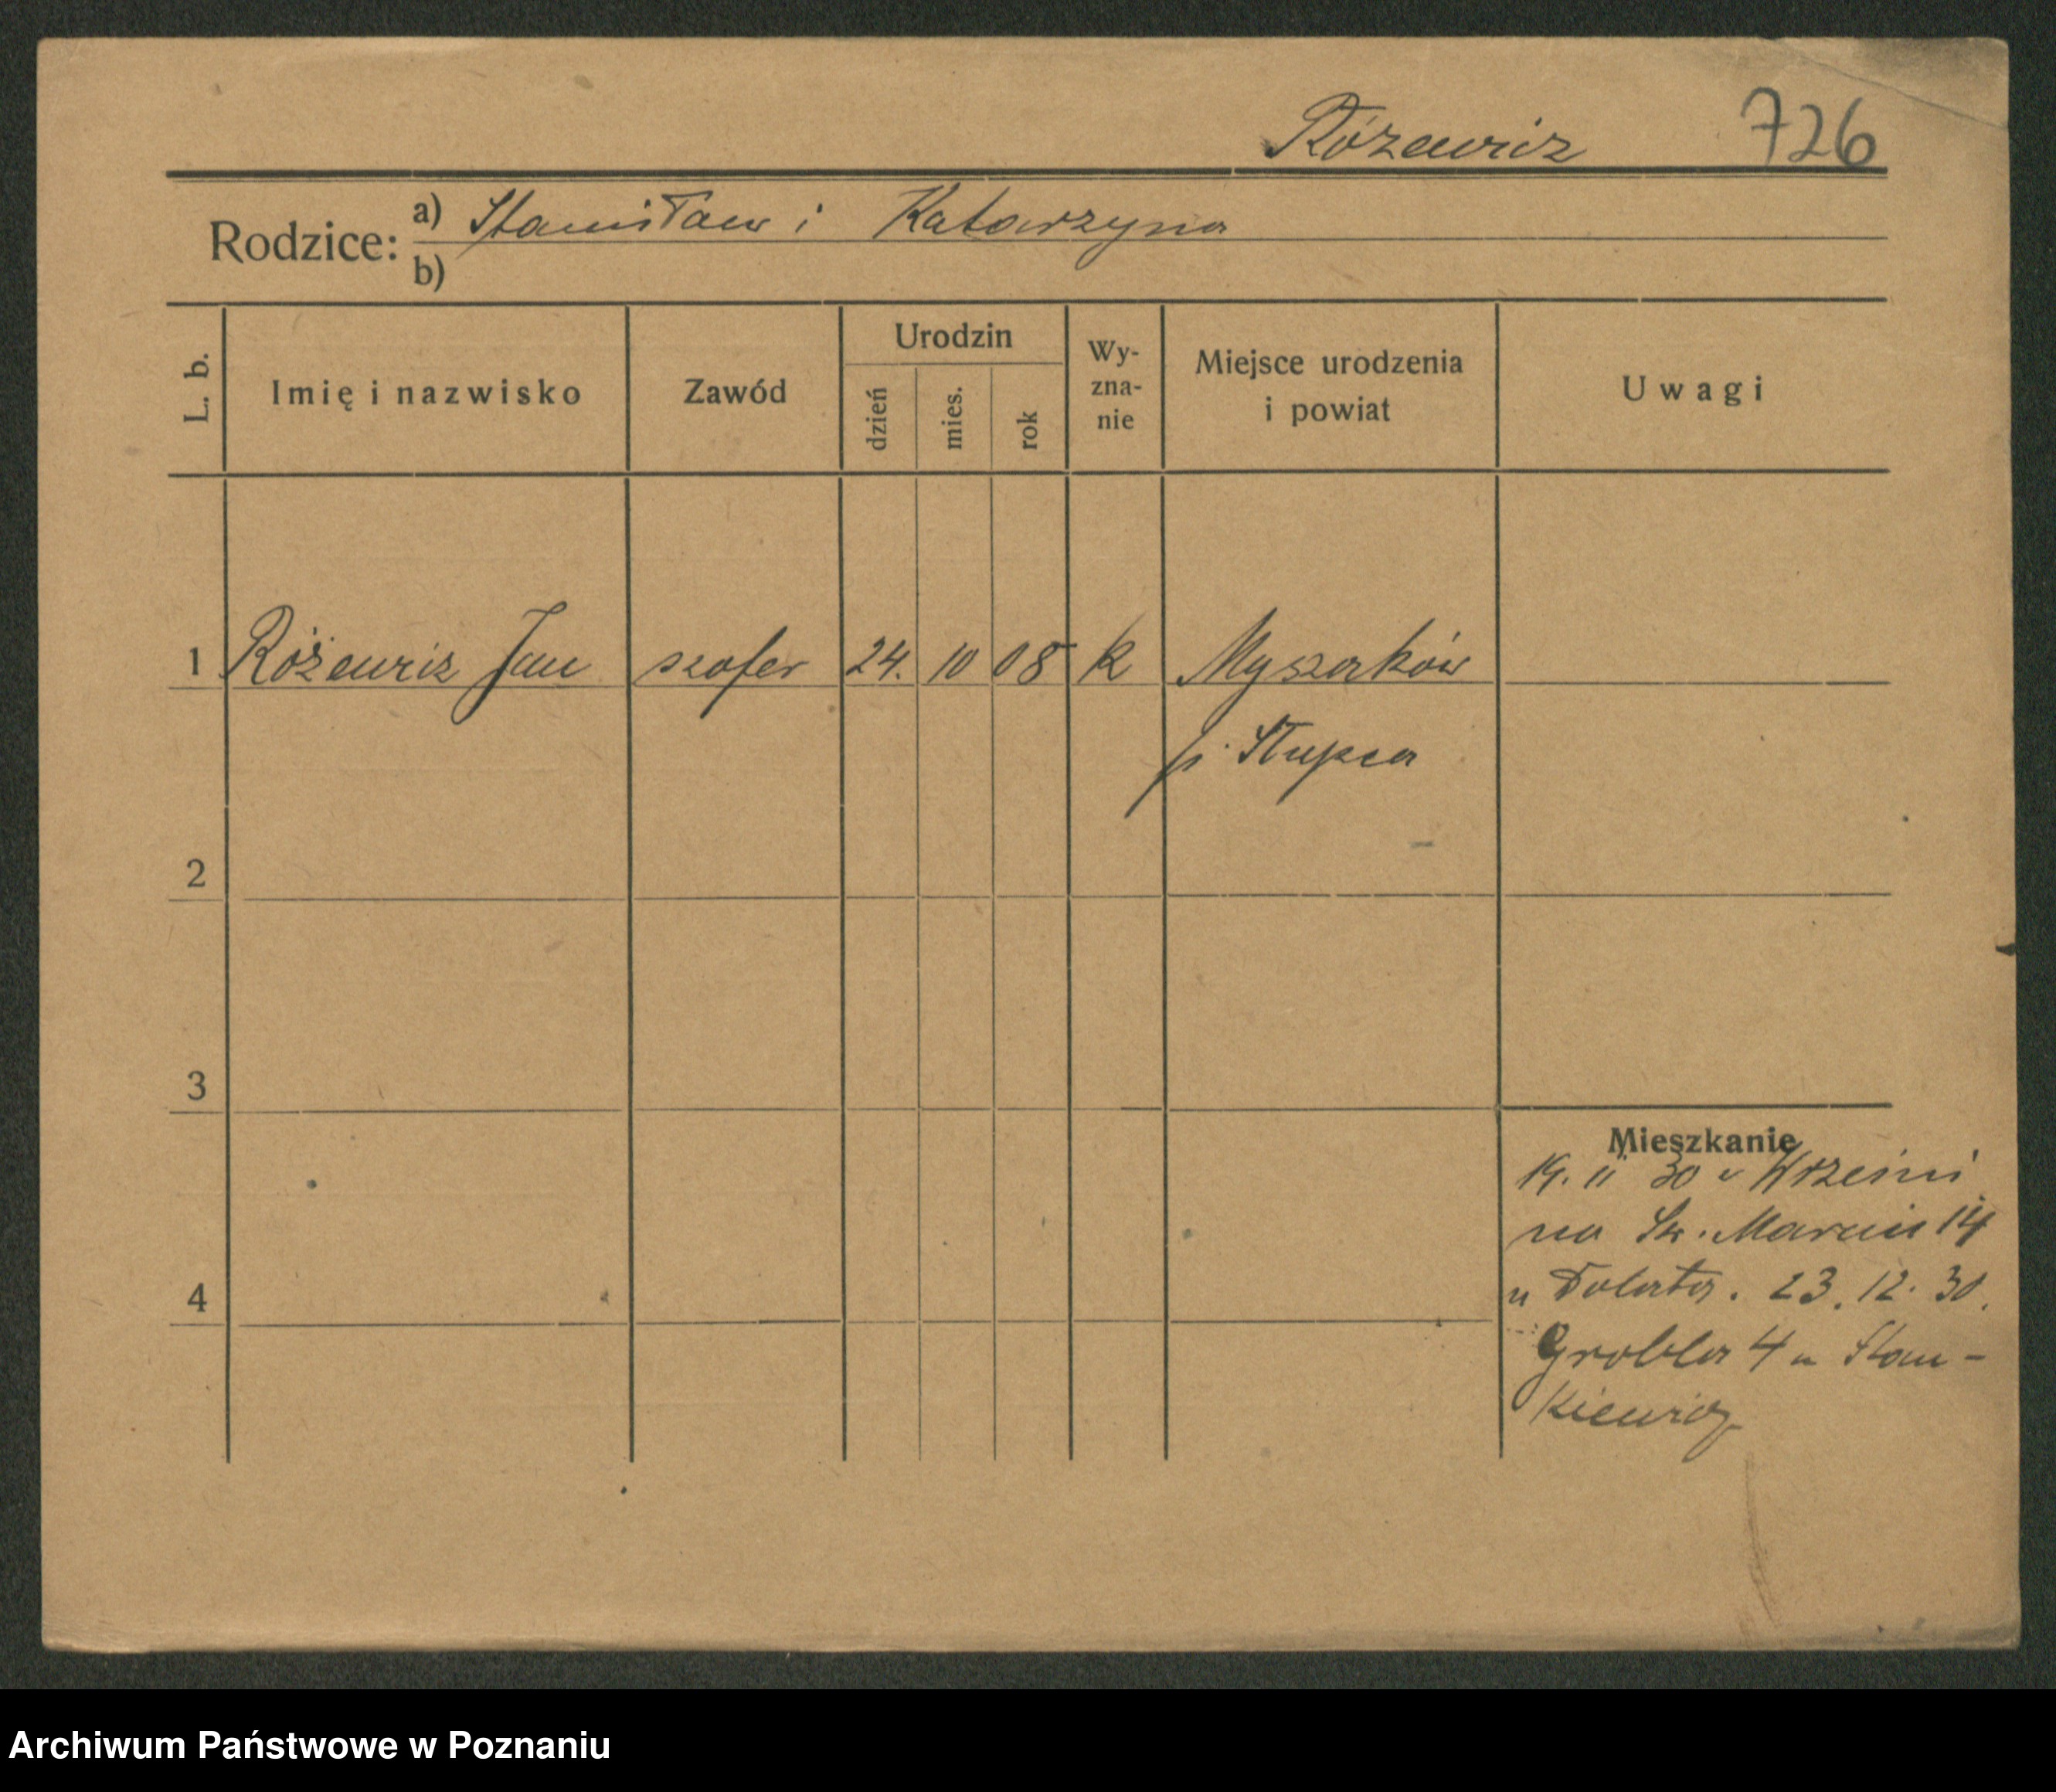 Różewicz 726
Rodzice: a) Stanisław i Katarzyna
b)
L. b. Imię i nazwisko Zawód Urodzin dzień mies. rok Wy-zna-nie Miejsce urodzenia i powiat Uwagi
1 Różewicz Jan szofer 24. 10 08 k Myszaków
p. Słupca
2
3
Mieszkanie
19. II 30 z Wrześni
na Św. Marcin 14
4
u Dolata. 23. 12. 30.
Grobla 4 u Stan-
kiewicz
Archiwum Państwowe w Poznaniu